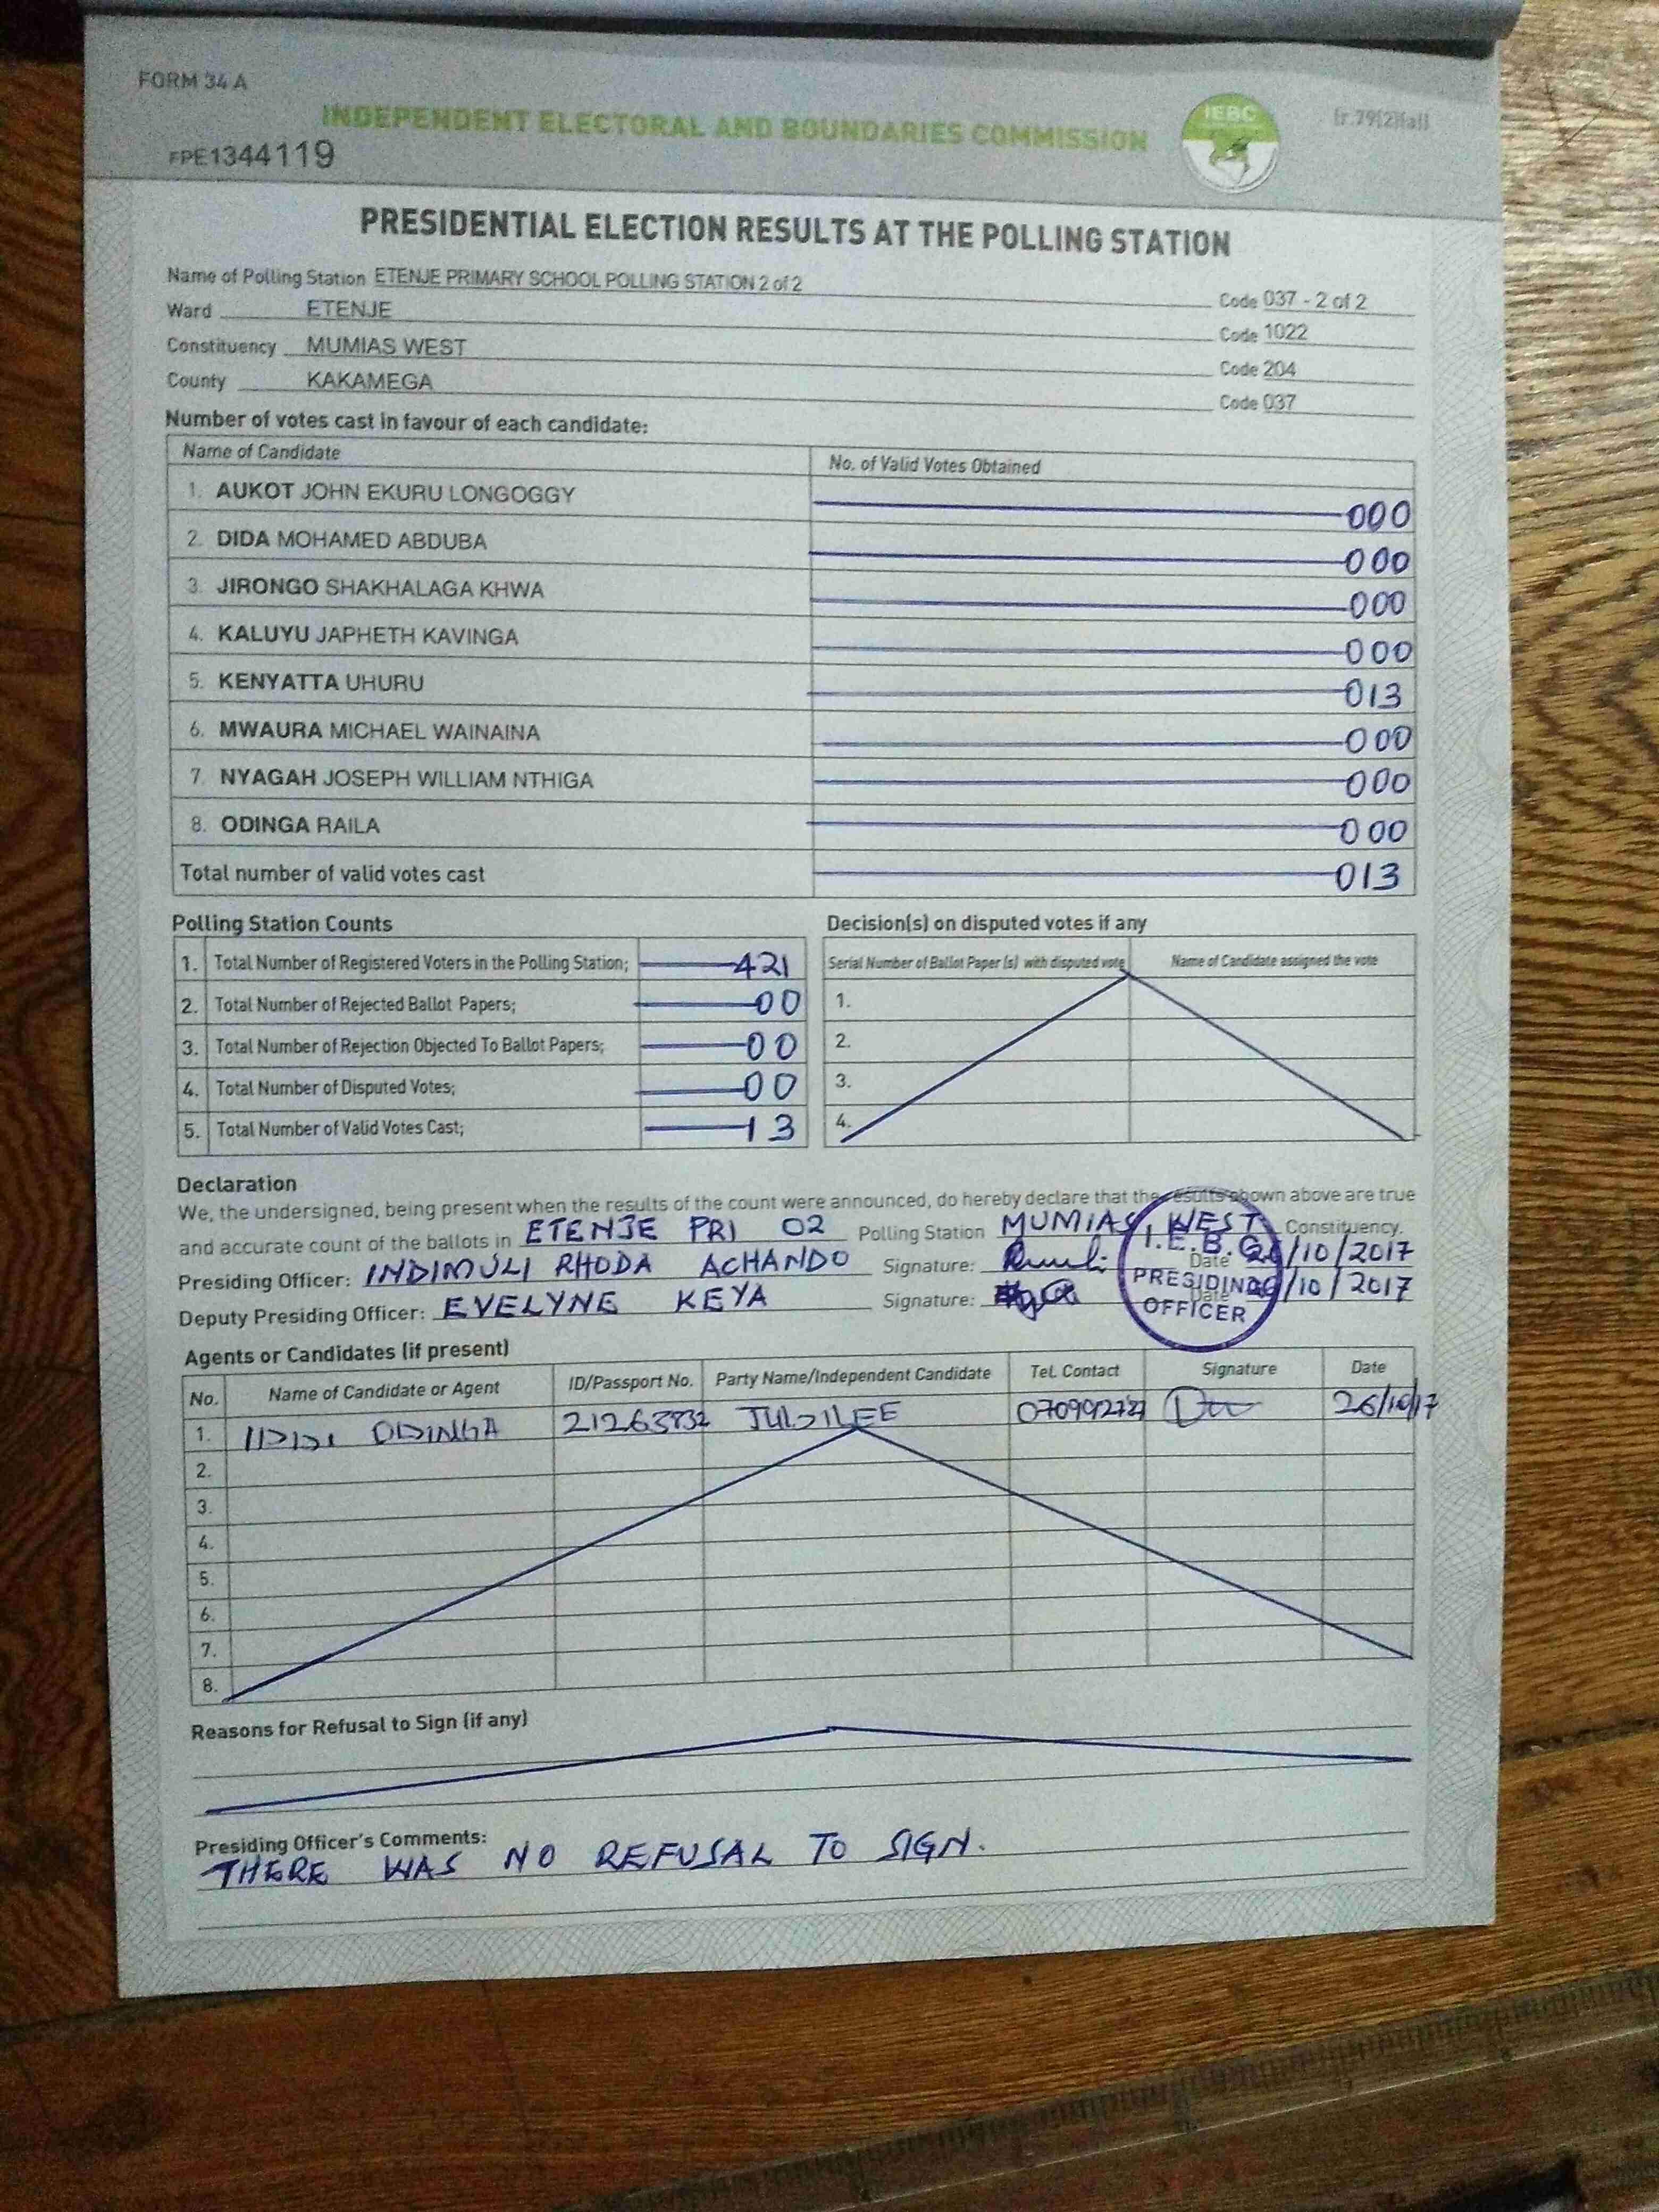 FORM 34 A
INDEPENDENT ELECTORAL AND BOUNDARIES COMMISSION
IEBC
(r.79(2)(a))
FPE1344119
PRESIDENTIAL ELECTION RESULTS AT THE POLLING STATION
Name of Polling Station ETENJE PRIMARY SCHOOL POLLING STATION 2 of 2 Code 037 - 2 of 2
Ward ETENJE Code 1022
Constituency MUMIAS WEST Code 204
County KAKAMEGA Code 037
Number of votes cast in favour of each candidate:
Name of Candidate No. of Valid Votes Obtained
1. AUKOT JOHN EKURU LONGOGGY 000
2. DIDA MOHAMED ABDUBA 000
3. JIRONGO SHAKHALAGA KHWA 000
4. KALUYU JAPHETH KAVINGA 000
5. KENYATTA UHURU 013
6. MWAURA MICHAEL WAINAINA 000
7. NYAGAH JOSEPH WILLIAM NTHIGA 000
8. ODINGA RAILA 000
Total number of valid votes cast 013
Polling Station Counts
1. Total Number of Registered Voters in the Polling Station; 421
2. Total Number of Rejected Ballot Papers; 00
3. Total Number of Rejection Objected To Ballot Papers; 00
4. Total Number of Disputed Votes; 00
5. Total Number of Valid Votes Cast; 13
Decision(s) on disputed votes if any
Serial Number of Ballot Paper (s) with disputed vote Name of Candidate assigned the vote
1.
2.
3.
4.
Declaration
We, the undersigned, being present when the results of the count were announced, do hereby declare that the results shown above are true
and accurate count of the ballots in ETENJE PRI 02 Polling Station MUMIAS WEST Constituency.
Presiding Officer: INDIMULI RHODA ACHANDO Signature: Date 26/10/2017
Deputy Presiding Officer: EVELYNE KEYA Signature: Date 26/10/2017
I.E.B.C
PRESIDING
OFFICER
Agents or Candidates (if present)
No. Name of Candidate or Agent ID/Passport No. Party Name/Independent Candidate Tel. Contact Signature Date
1. ODINGA JUBILEE 26/10/17
2.
3.
4.
5.
6.
7.
8.
Reasons for Refusal to Sign (if any)
Presiding Officer's Comments:
THERE WAS NO REFUSAL TO SIGN.